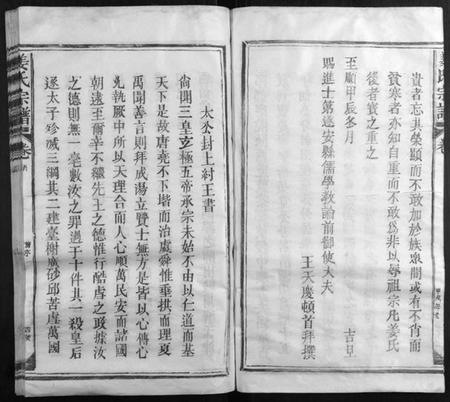 貴者忘其榮顯而不敢加於族衆間或有不肖而
貧寒者亦知自重而不敢為非以辱祖宗凡姜氏
後者寳之重之
至順甲辰冬月 吉旦
賜進士第遂安縣儒學教諭前御使大夫
王天慶頓首拜撰
姜氏宗譜
卷
太公封上紂王書
尚聞三皇立極五帝承宗未始不由以仁道而基
天下是故唐堯不下堦而治虞舜惟垂拱而理夏
禹聞善言則拜成湯立賢士無方是皆以心傳心
允執厥中所以天理合而人心順萬民安而諸國
朝逮至爾辛不繼先王之德惟行酷虐之政據汝
之德則無一毫數汝之罪過于十件其一殺皇后
逐太子殄滅三綱其二建臺榭廣砂邱苦虐萬國
姜氏宗譜
卷